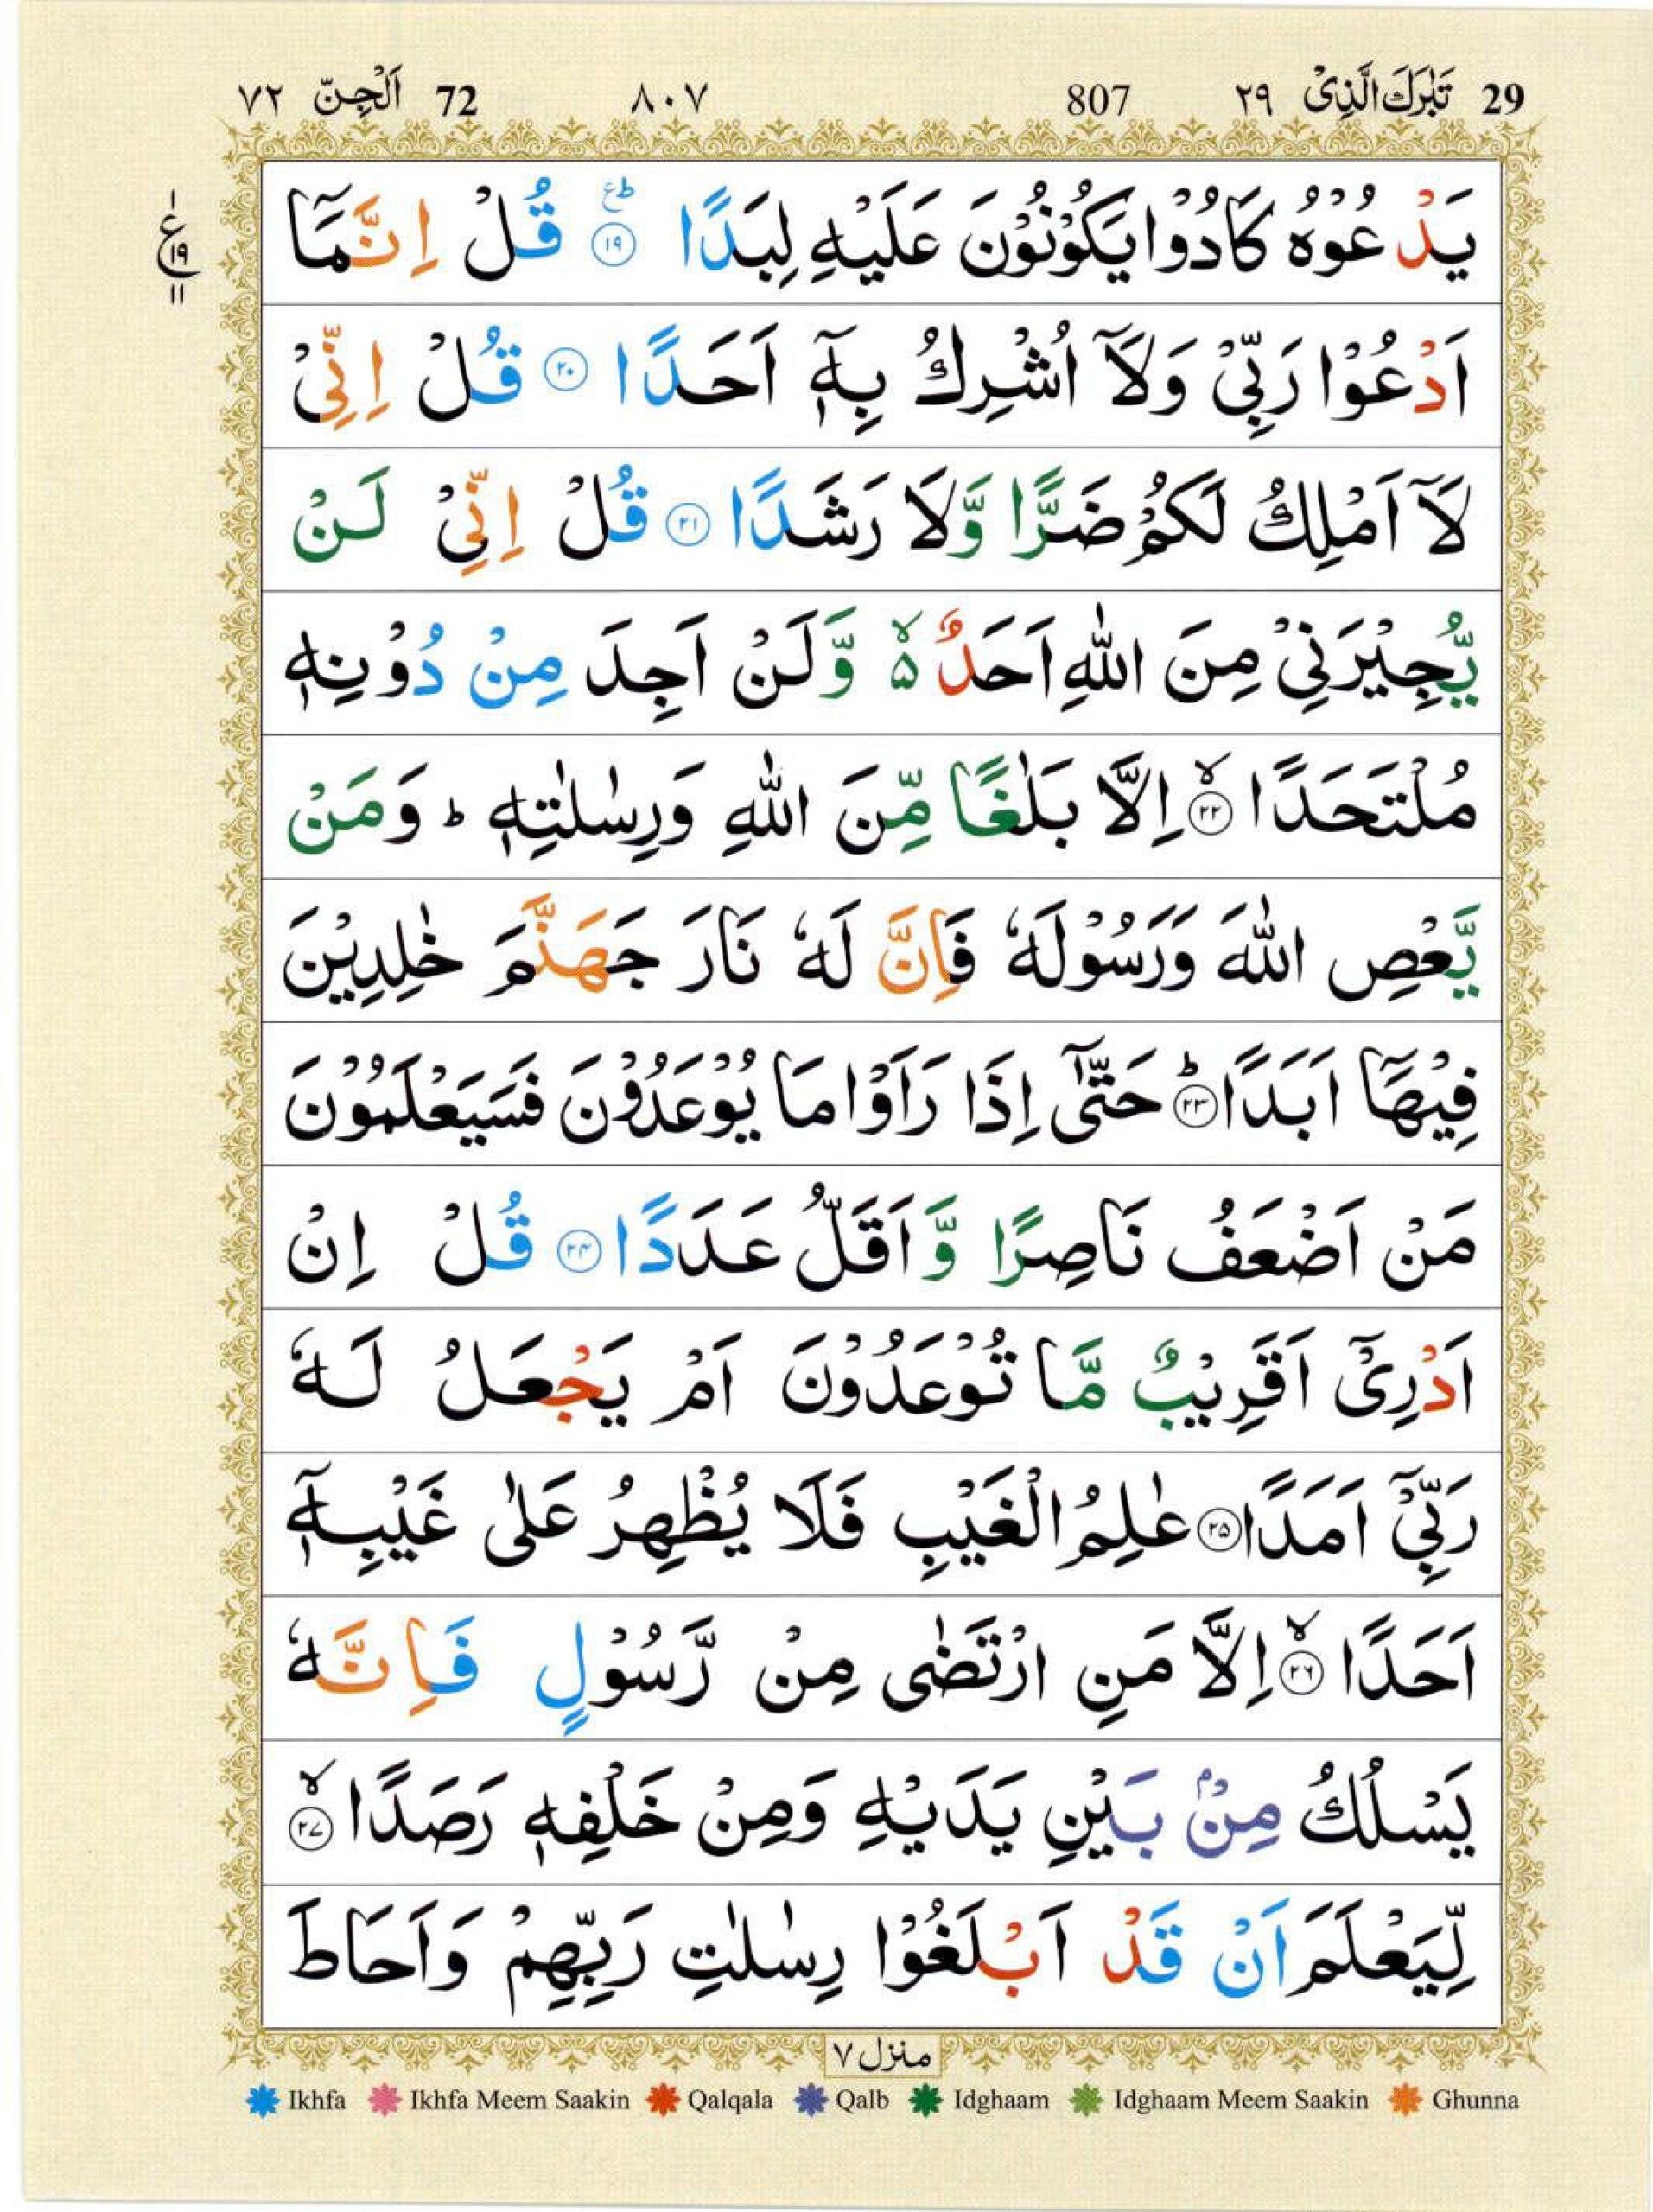 29 تَبٰرَكَ الَّذِیْ ٢٩ 807 ٨٠٧ 72 اَلْجِنّ ٧٢
یَدْعُوْهُ كَادُوْا یَكُوْنُوْنَ عَلَیْهِ لِبَدًا ؕ۠ ۝١٩ قُلْ اِنَّمَاۤ
١
ع
١٩
١١
اَدْعُوْا رَبِّیْ وَلَاۤ اُشْرِكُ بِهٖۤ اَحَدًا ۝٢٠ قُلْ اِنِّیْ
لَاۤ اَمْلِكُ لَكُمْ ضَرًّا وَّلَا رَشَدًا ۝٢١ قُلْ اِنِّیْ لَنْ
یُّجِیْرَنِیْ مِنَ اللّٰهِ اَحَدٌ ۵ۙ وَّلَنْ اَجِدَ مِنْ دُوْنِهٖ
مُلْتَحَدًا ۙ۝٢٢ اِلَّا بَلٰغًا مِّنَ اللّٰهِ وَرِسٰلٰتِهٖ ؕ وَمَنْ
یَّعْصِ اللّٰهَ وَرَسُوْلَهٗ فَاِنَّ لَهٗ نَارَ جَهَنَّمَ خٰلِدِیْنَ
فِیْهَاۤ اَبَدًا ؕ۝٢٣ حَتّٰۤی اِذَا رَاَوْا مَا یُوْعَدُوْنَ فَسَیَعْلَمُوْنَ
مَنْ اَضْعَفُ نَاصِرًا وَّاَقَلُّ عَدَدًا ۝٢٤ قُلْ اِنْ
اَدْرِیْۤ اَقَرِیْبٌ مَّا تُوْعَدُوْنَ اَمْ یَجْعَلُ لَهٗ
رَبِّیْۤ اَمَدًا ۝٢٥ عٰلِمُ الْغَیْبِ فَلَا یُظْهِرُ عَلٰی غَیْبِهٖۤ
اَحَدًا ۙ۝٢٦ اِلَّا مَنِ ارْتَضٰی مِنْ رَّسُوْلٍ فَاِنَّهٗ
یَسْلُكُ مِنْۢ بَیْنِ یَدَیْهِ وَمِنْ خَلْفِهٖ رَصَدًا ۙ۝٢٧
لِّیَعْلَمَ اَنْ قَدْ اَبْلَغُوْا رِسٰلٰتِ رَبِّهِمْ وَاَحَاطَ
منزل ٧
Ikhfa Ikhfa Meem Saakin Qalqala Qalb Idghaam Idghaam Meem Saakin Ghunna